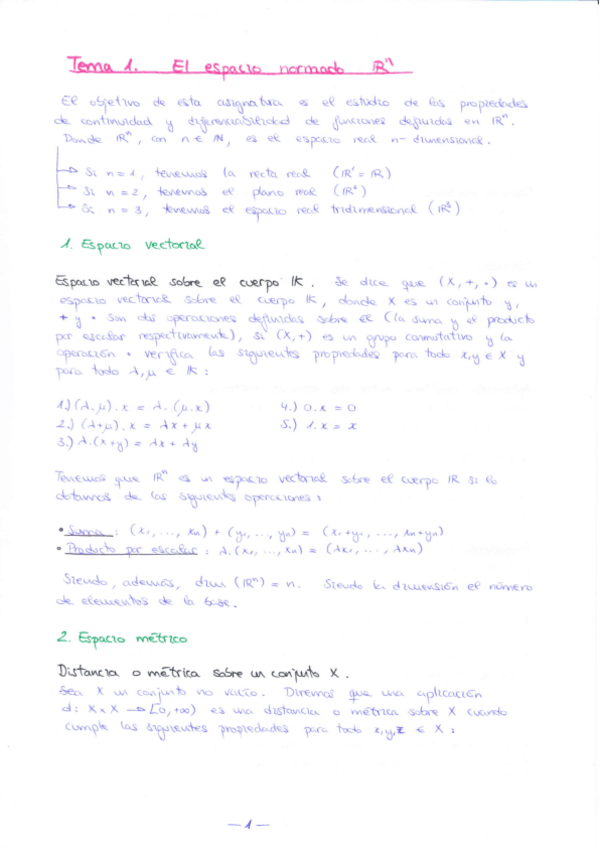 Tema 1. El espacio normado ℝⁿ
El objetivo de esta asignatura es el estudio de las propiedades
de continuidad y diferenciabilidad de funciones definidas en ℝⁿ.
Donde ℝⁿ, con n ∈ ℕ, es el espacio real n-dimensional.
→ Si n = 1, tenemos la recta real (ℝ¹ = ℝ)
→ Si n = 2, tenemos el plano real (ℝ²)
→ Si n = 3, tenemos el espacio real tridimensional (ℝ³)
1. Espacio vectorial
Espacio vectorial sobre el cuerpo 𝕂. Se dice que (X, +, ·) es un
espacio vectorial sobre el cuerpo 𝕂, donde X es un conjunto y,
+ y · son dos operaciones definidas sobre él (la suma y el producto
por escalar respectivamente), si (X, +) es un grupo conmutativo y la
operación · verifica las siguientes propiedades para todo x, y ∈ X y
para todo λ, μ ∈ 𝕂 :
1.) (λ·μ)·x = λ·(μ·x) 4.) 0·x = 0
2.) (λ+μ)·x = λx + μx 5.) 1·x = x
3.) λ·(x+y) = λx + λy
Tenemos que ℝⁿ es un espacio vectorial sobre el cuerpo ℝ si lo
dotamos de las siguientes operaciones :
• Suma : (x₁, ..., xₙ) + (y₁, ..., yₙ) = (x₁+y₁, ..., xₙ+yₙ)
• Producto por escalar : λ·(x₁, ..., xₙ) = (λx₁, ..., λxₙ)
Siendo, además, dim (ℝⁿ) = n. Siendo la dimensión el número
de elementos de la base.
2. Espacio métrico
Distancia o métrica sobre un conjunto X.
Sea X un conjunto no vacío. Diremos que una aplicación
d: X × X → [0, +∞) es una distancia o métrica sobre X cuando
cumple las siguientes propiedades para todo x, y, z ∈ X :
— 1 —